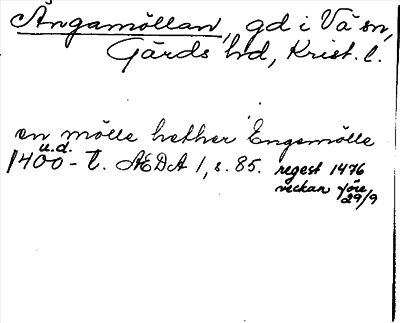 Ängamöllan, gd i Vä sn,
Gärds hd, Krist. l.
en mölle hether Engemölle
u.d.
1400-t. AEDA 1, s. 85. regest 1476
veckan före
29/9